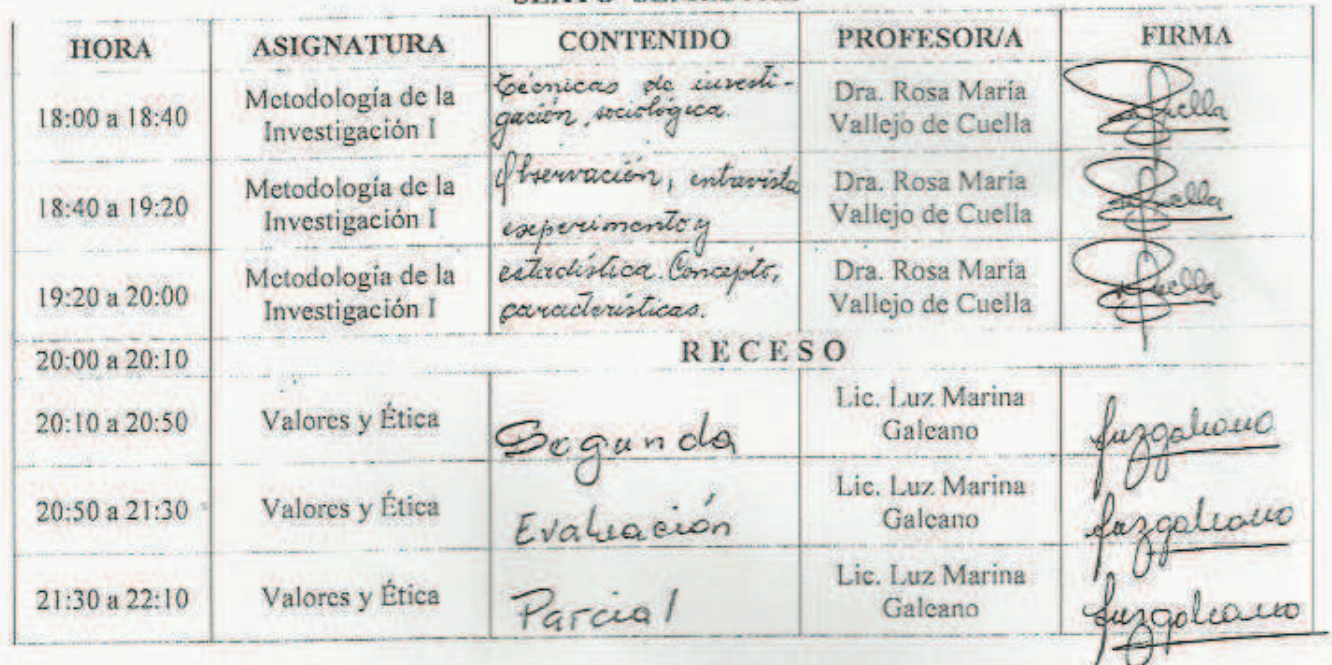 HORA ASIGNATURA CONTENIDO PROFESOR/A FIRMA
18:00 a 18:40 Metodología de la Investigación I Técnicas de investi- Dra. Rosa María Vallejo de Cuella
gación sociológica.
18:40 a 19:20 Metodología de la Investigación I Observación, entrevista Dra. Rosa María Vallejo de Cuella
experimento y
19:20 a 20:00 Metodología de la Investigación I estadística. Concepto, Dra. Rosa María Vallejo de Cuella
características.
20:00 a 20:10 RECESO
20:10 a 20:50 Valores y Ética Segunda Lic. Luz Marina Galeano luzgaleano
20:50 a 21:30 Valores y Ética Evaluación Lic. Luz Marina Galeano luzgaleano
21:30 a 22:10 Valores y Ética Parcial Lic. Luz Marina Galeano luzgaleano